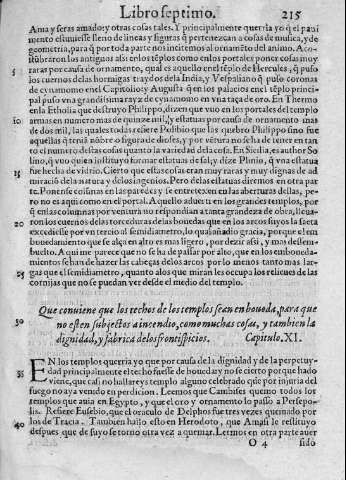 Libro septimo. 215
Ama y seras amado: y otras cosas tales. Y principalmente querria yo q̃ el paui
mento estuuiesse lleno de lineas y figuras q̃ pertenezcan a cosas de musica, y de
geometria, para q̃ por toda parte nos incitemos al ornamẽto del animo. Aco-
stũbraron los antiguos assi en los tẽplos como en los portales poner cosas muy
5 raras por causa de ornamento, qual es aquello en el tẽplo de Hercules, q̃ puso
los cuernos de las hormigas traydos de la India, y Vespasiano q̃ puso coronas
de cynamomo en el Capitolio: y Augusta q̃ en los palacios en el tẽplo princi-
pal puso vna grandissima rayz de cynamomo en vna taça de oro. En Thermo
en la Etholia que destruyo Philippo, dizen que vuo en los portales del templo
10 armas en numero mas de quinze mil, y estatuas por causa de ornamento mas
de dos mil, las quales todas refiere Polibio que las quebro Philippo sino fue
aquellas q̃ tenia nõbre o figura de dioses, y por vẽtura no se ha de tener en tan
to el numero destas cosas quanto la variedad de la cosa. En Sicilia, es author So
lino, q̃ vuo quien instituyo formar estatuas de sal, y dize Plinio, q̃ vna estatua
15 fue hecha de vidrio. Cierto que estas cosas eran muy raras y muy dignas de ad
miraciõ de la natura y de los ingenios. Pero de las estatuas diremos en otra par
te. Ponense colũnas en las paredes y se entretexen en las aberturas dellas, pe-
ro no es aqui como en el portal. Aquello aduerti en los grandes templos, por
q̃ en las columnas por ventura no respondian a tanta grandeza de obra, lleua-
20 ron los cuentos de redondez de las bouedas que en los arcos su saeta
excediesse por vn tercio al semidiametro, lo qual añadio gracia, porque el em
bouedamiento que se alça en alto es mas ligero, por dezir assi, y mas desem-
buelto. A qui me parece que no se ha de passar por alto, que en los emboueda-
mientos se han de hazer las cabeças de los arcos por lo menos tanto mas lar-
25 gas que el semidiametro, quanto a los que miran les occupa los relieues de las
cornijas que no se puedan ver desde el medio del templo.
Que conuiene que los techos de los templos sean en boueda, para que
30 no esten subjectos a incendio, como muchas cosas, y tambien la
dignidad, y fabrica de los frontispicios. Capitulo. XI.
EN los templos querria yo que por causa de la dignidad y de la perpetuy-
35 dad principalmente el techo fuesse de boueda y no se cierto por que hado
viene, que casi no hallareys templo alguno celebrado que por injuria del
fuego no aya venido en perdicion. Leemos que Cambises quemo todos los
templos que auia en Egypto, y que el oro y ornamento lo passo a Persepo-
lis. Refiere Eusebio, que el oraculo de Delphos fue tres vezes quemado por
40 los de Tracia. Tambien hallo esto en Herodoto, que Amasi le restituyo
despues que de suyo se torno otra vez a quemar. Leemos en otra parte auer
O 4 sido